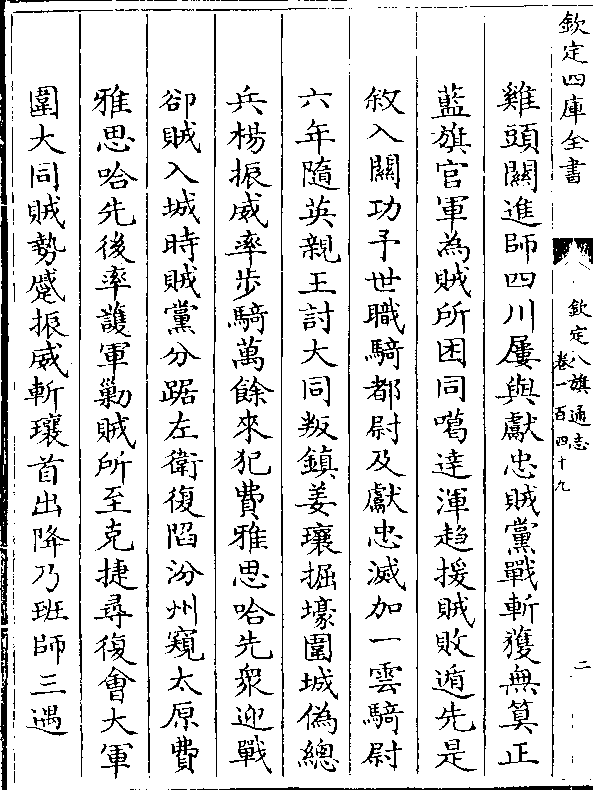 欽定四庫全書
欽定八旗通志
卷一百四十九
二
雞頭關進師四川屢與獻忠賊黨戰斬獲無算正
藍旗官軍為賊所困同噶達渾趋援賊敗遁先是
敘入關功予世職騎都尉及獻忠滅加一雲騎尉
六年隨英親王討大同叛鎮姜瓖掘壕圍城偽總
兵楊振威率步騎萬餘來犯費雅思哈先衆迎戰
卻賊入城時賊黨分踞左衛復陷汾州窺太原費
雅思哈先後率護軍勦賊所至克捷尋復會大軍
圍大同賊勢蹙振威斬瓖首出降乃班師三遇